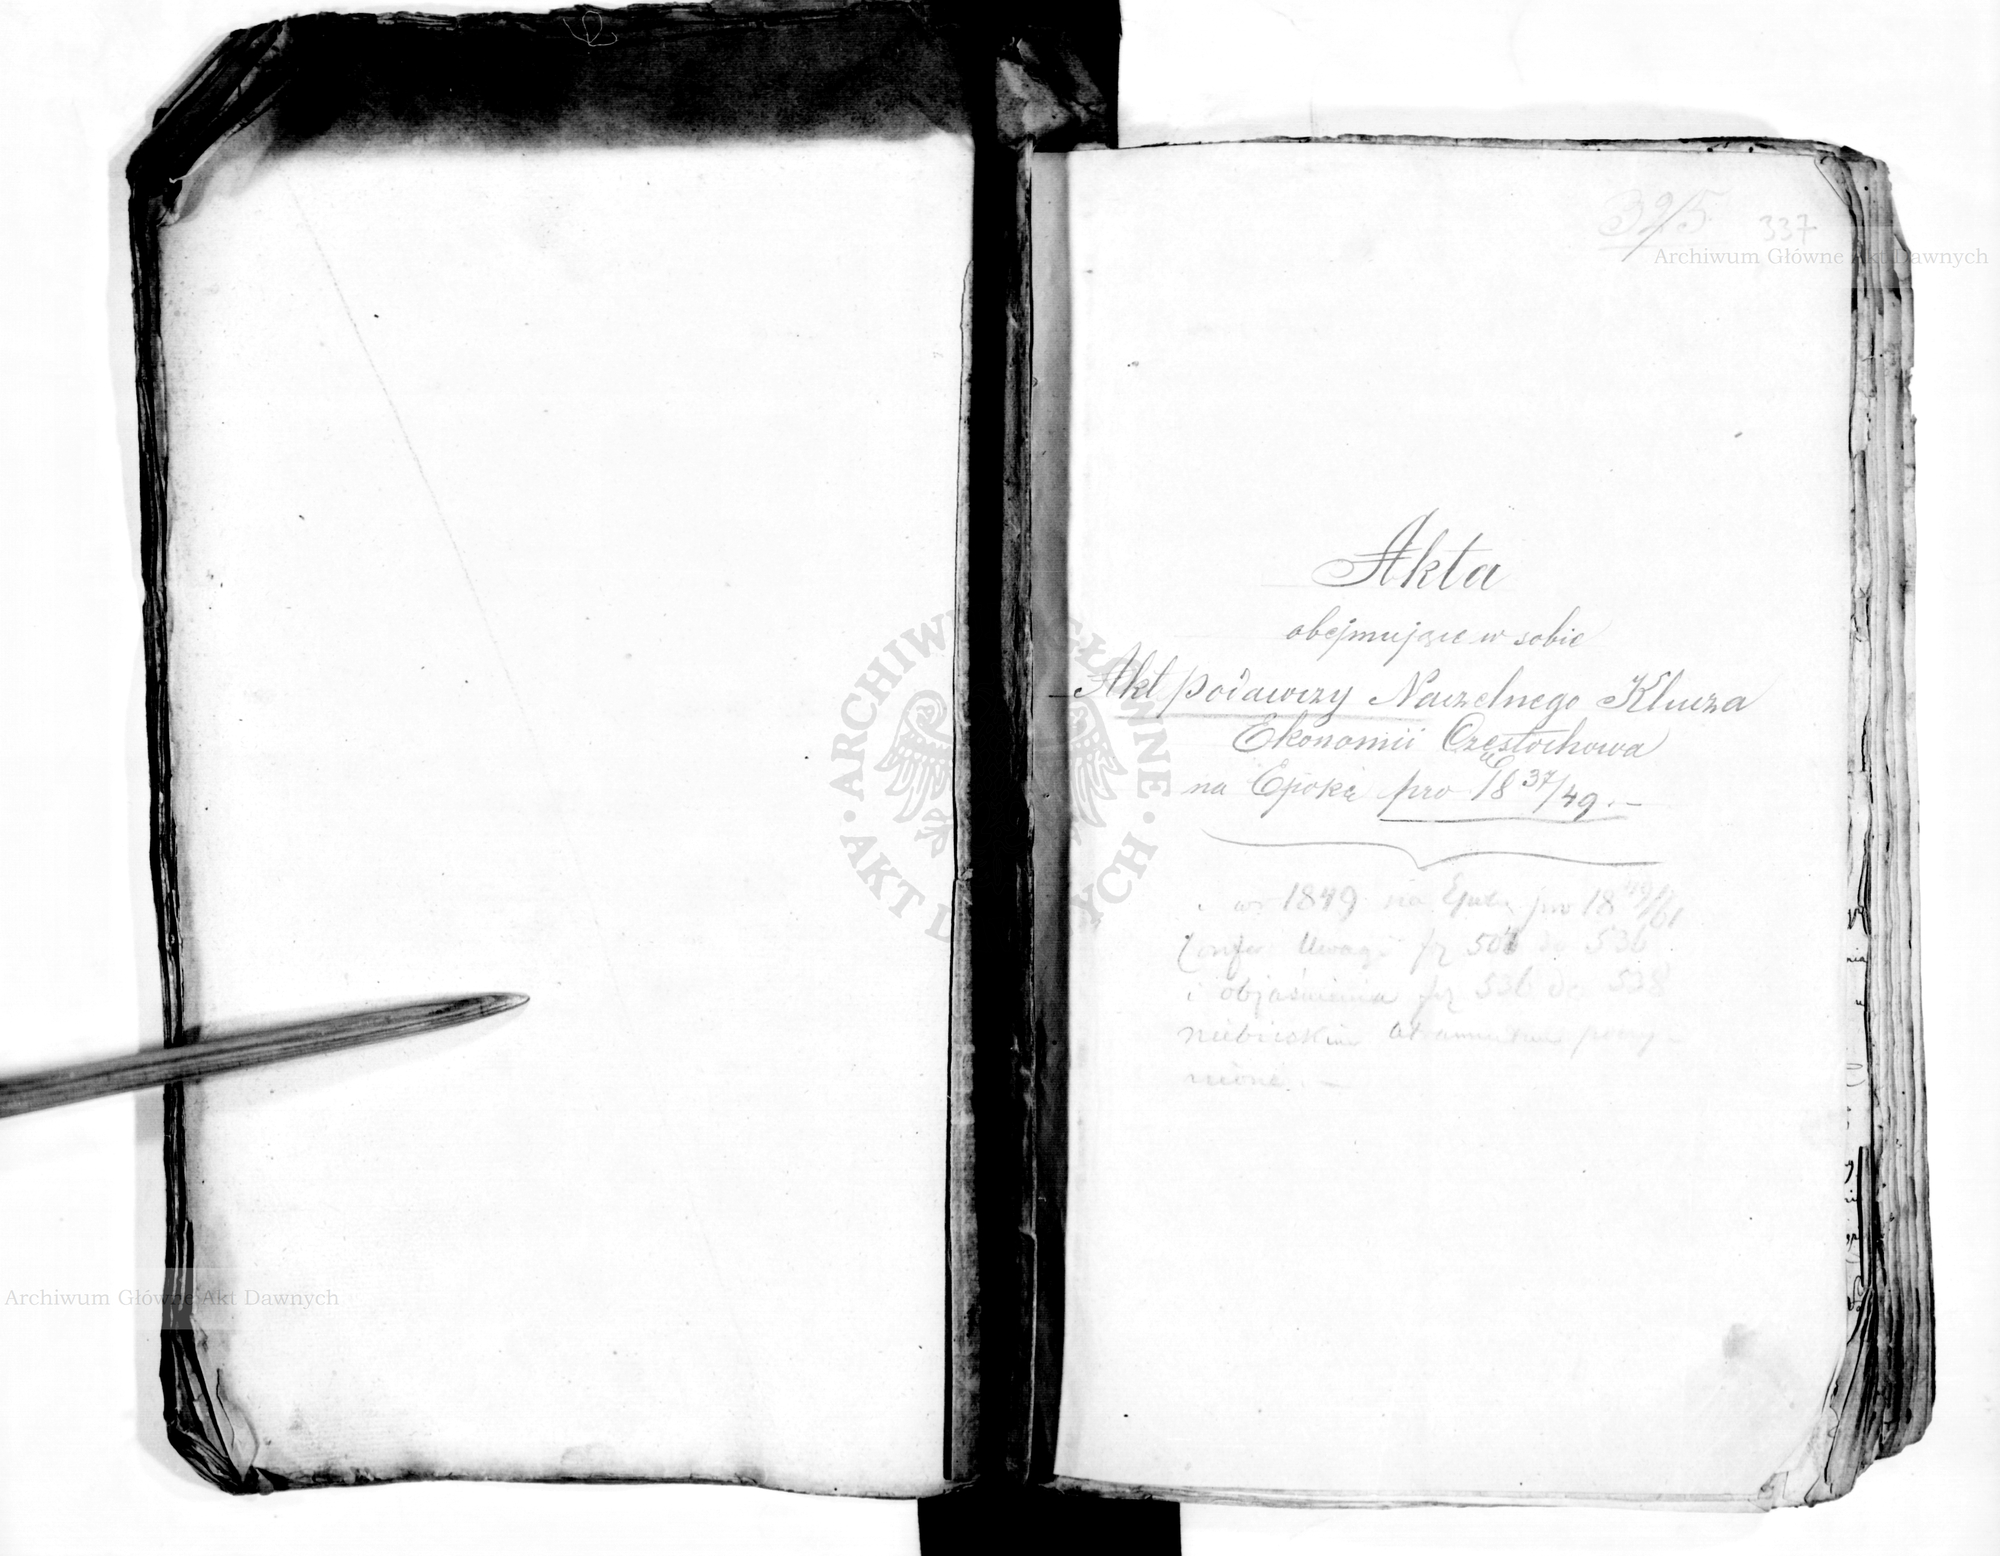 325 337
Archiwum Główne Akt Dawnych
Akta
obejmujące w sobie
Akt podawczy Naczelnego Klucza
Ekonomii Częstochowa
na Epokę pro 18 37/49.—
i w 1849 na Epokę pro 18 49/61
Uwagi 506 do 536
i objaśnienia 536 do 538
niebieskim atramentem poczy-
nione. —
ARCHIWUM GŁÓWNE
AKT DAWNYCH
Archiwum Główne Akt Dawnych